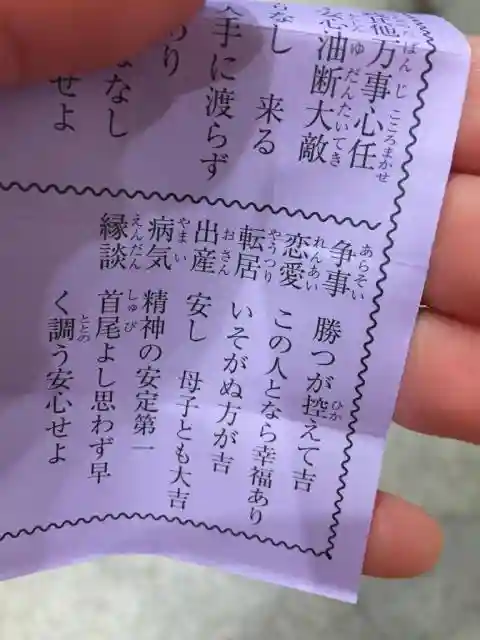 他万事心任
油断大敵
なし 来る
手に渡らず
あり
なし
せよ
争事 勝つが控えて吉
恋愛 この人となら幸福あり
転居 いそがぬ方が吉
出産 安し 母子とも大吉
病気 精神の安定第一
縁談 首尾よし思わず早
く調う安心せよ